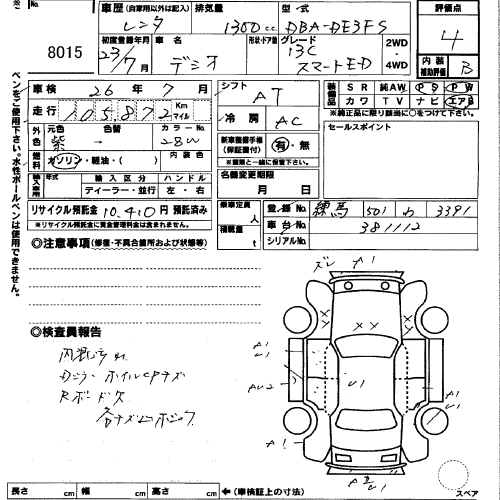 8015
ペンをご使用下さい。水性ボールペンは使用できません。
車歴 (自家用以外は記入) 排気量 型式 評価点
レンタ 1300cc DBA-DE3FS 4
初度登録年月 車名 形状 ドア数 グレード
23/7 デミオ 13C スマートE-D
2WD 4WD
内装 補助評価 B
車検 26年7月
シフト AT
装備品 SR 純AW PS PW
カワ TV ナビ エアB
※純正品に限り該当品に○をつけて下さい。
走行 105872 Km マイル
冷房 AC
セールスポイント
外色 元色 色替 カラーNo.
紫→ 28W
新車整備手帳(保証書付) 有・無
※書類と一緒に保管下さい。
燃料 ガソリン・軽油・( ) 内装色
輸入車用 年式 輸入区分 ハンドル
ディーラー・並行 左・右
名義変更期限
月 日
リサイクル預託金 10,410円 預託済み
※リサイクル預託金に資金管理料金は含まれません。
乗車定員 人
積載量 t
登録No. 練馬 501 わ 3391
車台No. 381112
シリアルNo.
◎注意事項 (修復・不具合箇所および状態等)
ズレ A1
◎検査員報告
内装汚れ
ホイルCPキズ
A1
U1
XX
XX
AU2
U1
A1
U1
A1
長さ cm 幅 cm 高さ cm ←(車検証上の寸法)
スペア